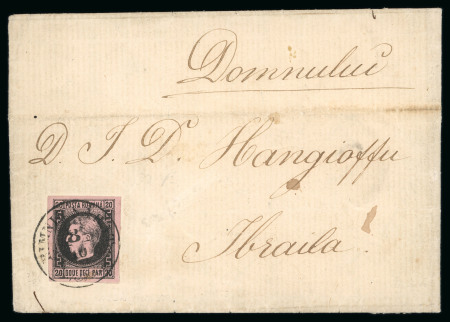 Domnului
D. I. D. Hangioffu
Ibraila
20 POSTA ROMANA 20
20 DOUE DECI PAR 20